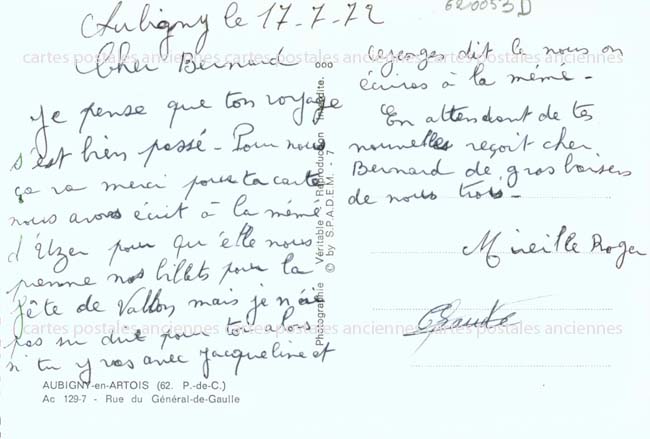 Aubigny le 17-7-72
620053D
Cher Bernard
je pense que ton voyage
s'est bien passé - Pour nous
ça va merci pour ta carte
nous avons écrit à la mémé
d'Uzer pour qu'elle nous
prenne nos billets pour la
fête de Vallon mais je n'ai
pas su dire pour toi alors
si tu y vas avec jacqueline et
georges dit le nous on
écrira à la mémé -
En attendant de tes
nouvelles reçoit cher
Bernard de gros baisers
de nous trois -
Mireille Roger
cartes postales anciennes cartes postales anciennes cartes postales anciennes
cartes postales anciennes cartes postales anciennes cartes postales anciennes
Photographie Véritable - Reproduction Interdite.
© by S.P.A.D.E.M. - 7
AUBIGNY-en-ARTOIS (62. P.-de-C.)
Ac 129-7 - Rue du Général-de-Gaulle